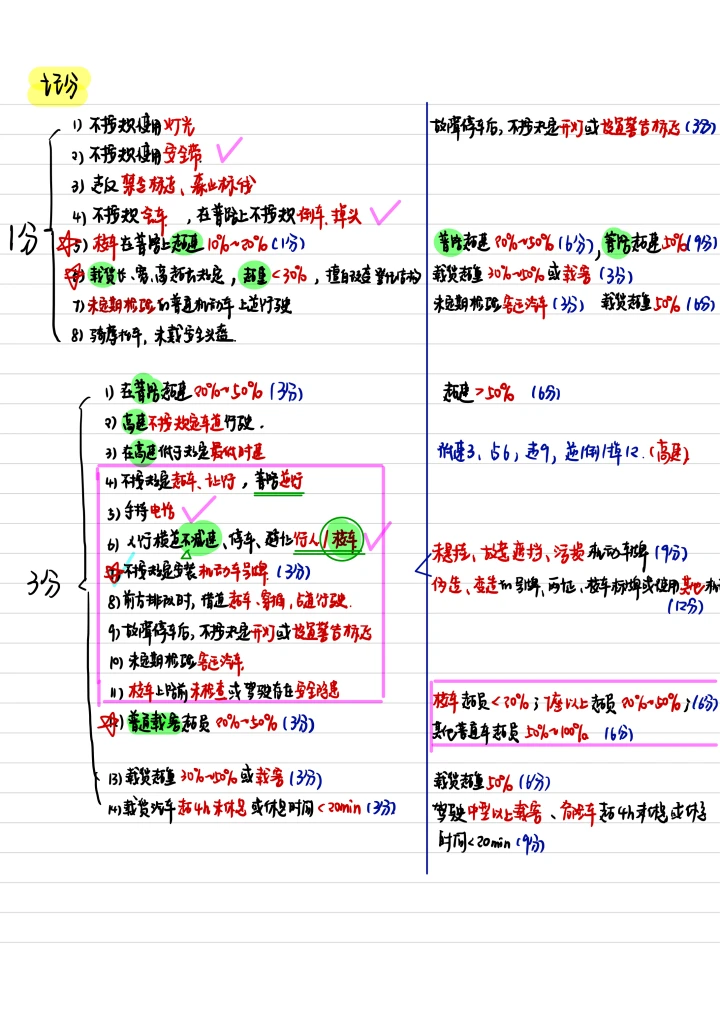 记分
1分
1) 不按规使用灯光
2) 不按规使用安全带
3) 违反禁令标志、禁止标线
4) 不按规会车，在普路上不按规倒车、掉头
5) 校车在普路上超速10%~20%(1分)
6) 载货长、宽、高超去规定，超重<30%，擅自改造
7) 未定期检验的普通机动车上道行驶
8) 骑摩托车，未戴安全头盔
故障停车后，不按规定开灯或设置警告标志(3分)
普路超速20%~50%(6分)，普路超速50%(9分)
载货超重30%~50%或载客(3分)
未定期检验客运汽车(3分) 载货超重50%(6分)
3分
1) 在普路超速20%~50%(3分)
2) 高速不按规定车道行驶.
3) 在高速低于规定最低时速
4) 不按规定超车、让行，普路逆行
5) 手持电话
6) 人行横道不减速、停车、避让行人/校车
7) 不按规定安装机动车号牌(3分)
8) 前方排队时，借道超车、穿插、占道行驶.
9) 故障停车后，不按规定开灯或设置警告标志
10) 未定期检验客运汽车
11) 校车上路前未检查或驾驶存在安全隐患
12) 普通载客超员20%~50%(3分)
13) 载货超重30%~50%或载客(3分)
14) 载货汽车超4h未休息或休息时间<20min(3分)
超速>50% (6分)
怕速3、占6、速9、逆1倒1掉12.(高速)
未悬挂、故意遮挡、污损机动车牌(9分)
伪造、变造的号牌、两证、校车标牌或使用其他机
(12分)
校车超员<20%；7座以上超员20%~50%；(6分)
其他普通车超员50%~100%. (6分)
载货超重50%(6分)
驾驶中型以上载客、危险车超4h未休息或休息
时间<20min(9分)